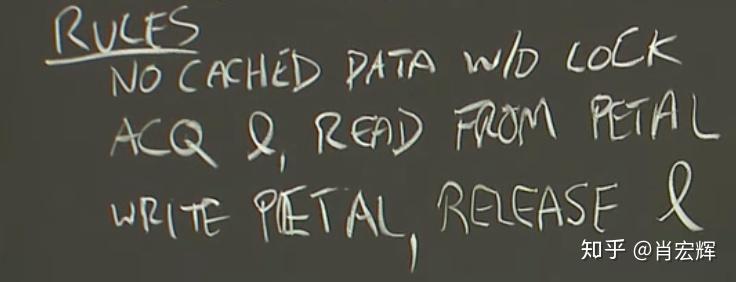 RULES
NO CACHED DATA W/O LOCK
ACQ l, READ FROM PETAL
WRITE PETAL, RELEASE l
知乎 @肖宏辉